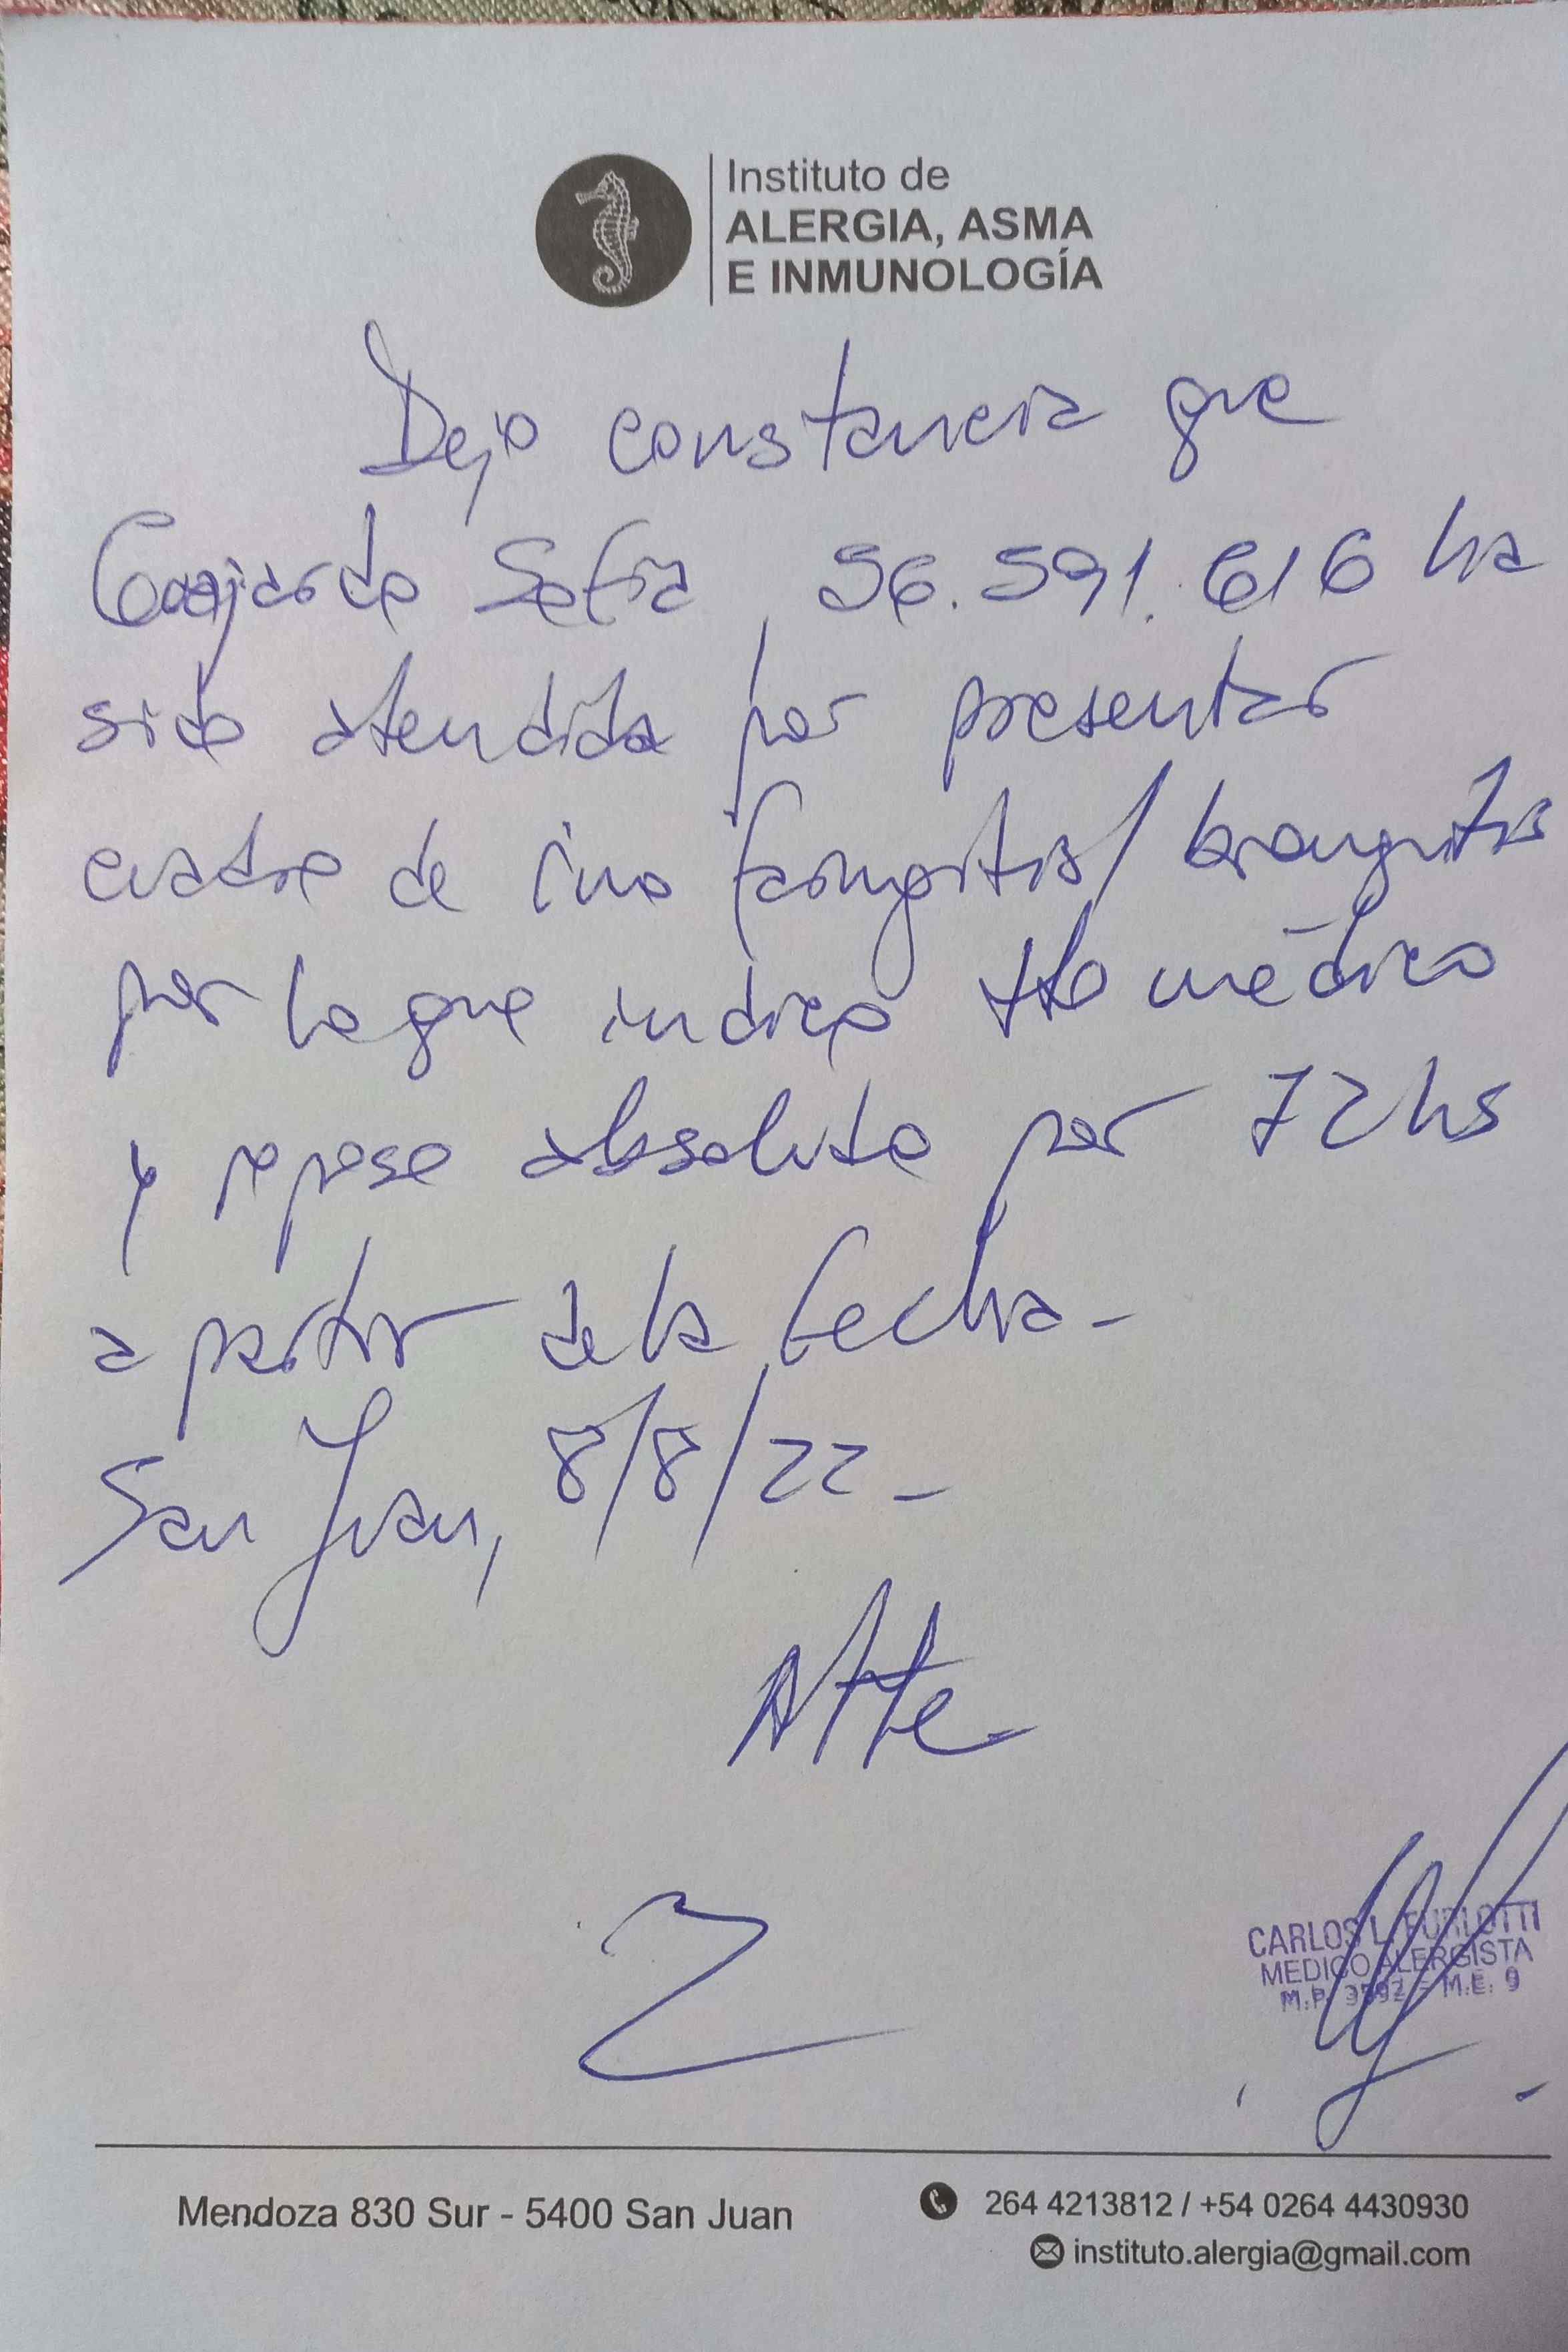 Instituto de
ALERGIA, ASMA
E INMUNOLOGÍA
Dejo constancia que
Sofia, 56.591.616 ha
sido atendida por presentar
cuadro de rino faringitis/
por lo que indico tto médico
y reposo absoluto por 72 hs
a partir de la fecha-
San Juan, 8/8/22-
Atte-
CARLOS L. FURLOTTI
MEDICO ALERGISTA
M.P. 3592 - M.E. 9
Mendoza 830 Sur - 5400 San Juan
264 4213812 / +54 0264 4430930
instituto.alergia@gmail.com